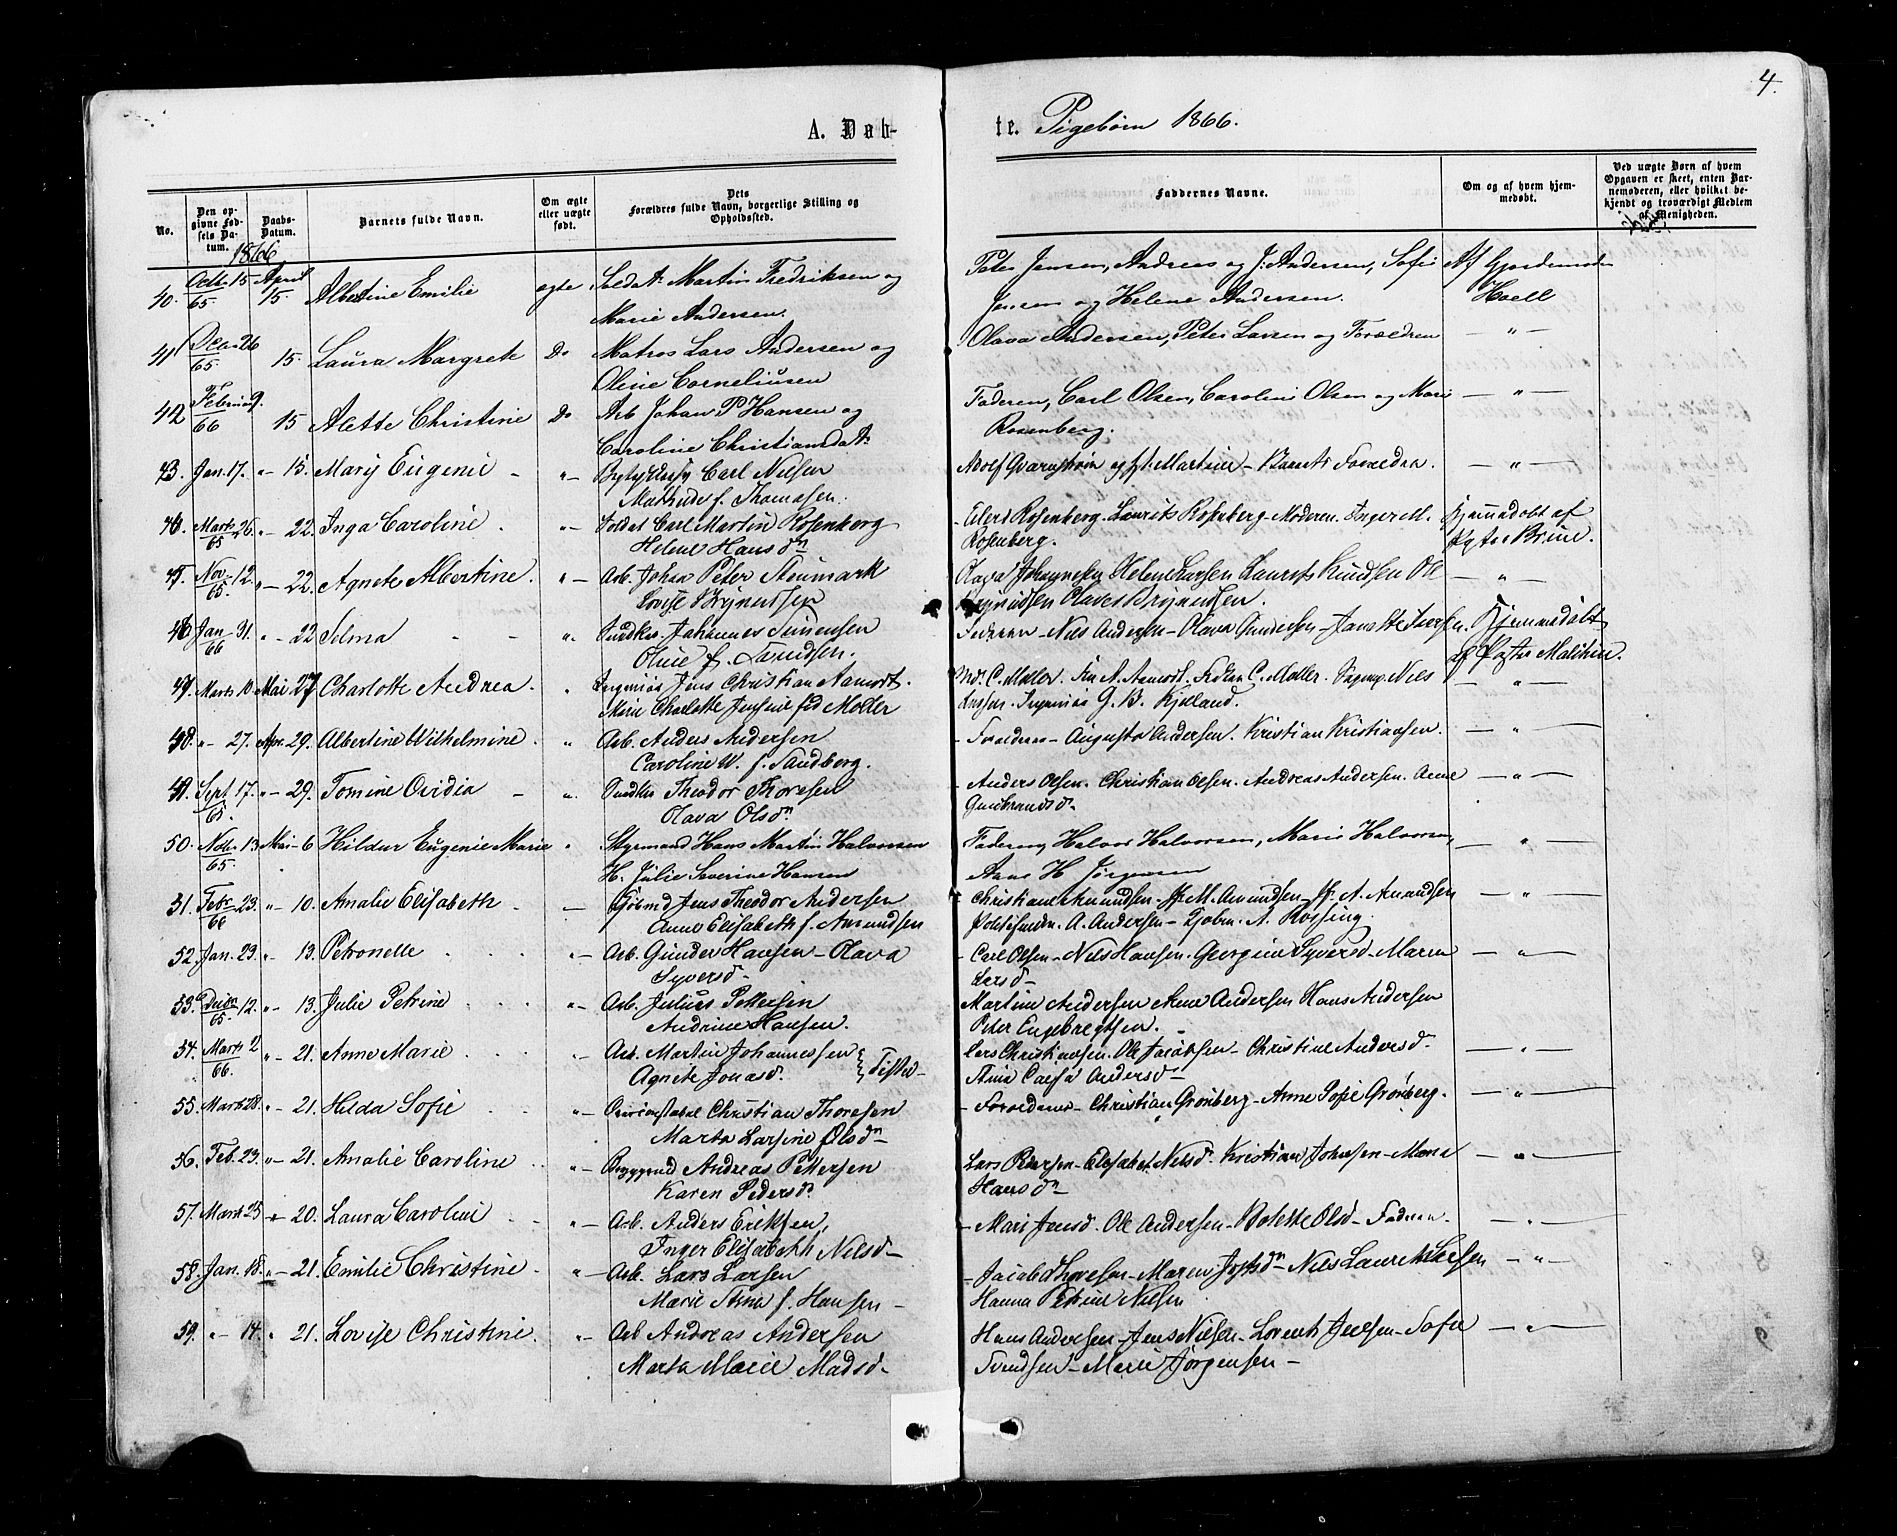 4.
A. Døb-
te. Pigebørn 1866.
No.
Den opgivne Fødsels Datum.
Daabs-Datum.
Barnets fulde Navn.
Om ægte eller uægte født.
Dets Forældres fulde Navn, borgerlige Stilling og Opholdssted.
Faddernes Navne.
Om og af hvem hjemmedøbt.
Ved uægte Børn af hvem Opgaven er skeet, enten Barnemoderen, eller hvilket bekjendt og troværdigt Medlem af Menigheden.
1866
40. Octb 15 65 April 15. Albertine Emilie ægte Soldat Martin Fredriksen og Peter Jensen, Andreas og J. Andersen, Sofie Af Gjordemoder
Marie Andersen. Jensen og Helene Andersen. Hoell
41 Decb 26 65. 15. Laura Margrete Do Matros Lars Andersen og Olava Andersen, Peter Larsen og Forældren — " —
Oline Corneliusen
42 Februar 9. 66 15 Alette Christine Do Arb Johan P Hansen og Faderen, Carl Olsen, Caroline Olsen og Marie — " —
Caroline Christiansdat. Rosenberg.
43. Jan. 17. " - 15. Mary Eugenie - " - Carl Nielsen Adolf Martin - Barnets Forældre. — " —
Mathilde f. Thomasen.
Marts 26. 65 " - 22. Inga Caroline. " - Soldat Carl Martin Rosenberg - Eilert Rosenberg. Laurits Rosenberg - Moderen. Inger M. Hjemmedøbt af
Helene Hansdn Rosenberg. Brine.
45. Nov. 12. 65. " - 22. Agnete Albertine. " - Arb. Johan Peter Steinmark Olava Johannesen Helene Larsen Laurits Knudsen Ole — " —
Lovise Brynildsen Brynildsen.
46 Jan 31. 66 " - 22 Selma - - " Johannes Simensen Faderen - Nils Andersen - Olava Gundersen - Janette Iversen. Hjemmedøbt
Oline f. Knudsen. af Malthine.
47. Marts 10. Mai 27 Charlotte Andrea. " Ingeniør Jens Christian Aamodt. C. Møller. A. Aamodt. C. Møller. Nils — " —
Marie Charlotte Josefine fød Møller Ingeniør G. B. Kjelland.
48. " - 27. Apr. 29. Albertine Wilhelmine. " Arb. Anders Andersen - Forældrene - Augusta Andersen. Kristian Kristiansen. — " —
Caroline W. f. Sandberg.
49. Sept 17. 65. " - 29. Tomine Ovidia - " Theodor Thoresen - Anders Olsen. Christian Olsen. Andreas Andersen. Anne — " —
Olava Olsdn Gulbrandsd.
50. Nov. 13 65. Mai - 6 Hildur Eugenie Marie " Styrmand Hans Martin Halvorsen Faderen, Halvor Halvorsen, Marie Halvorsen, — " —
H. Julie Severine Hansen Aane H Jørgensen
51. Febr 23. 66 " - 10. Amalie Elisabeth - — Jens Theodor Andersen Christian Amundsen. M. Amundsen A. Amundsen — " —
Anne Elisabeth f. Amundsen A. Andersen - A. Rossing.
52. Jan. 23. " - 13. Petronelle " - Arb. Gunder Hansen - Olava - Carl Olsen - Nils Hansen. Georgine Syversd - Maren — " —
Syversd - Larsd -
53. Decbr 12. 65. " - 13. Julie Petrine " - Arb. Julius Pettersen Martine Andersen Anne Andersen Hans Andersen
Andrine Hansen. Peter Engebregtsen.
54. Marts 2 66. " - 21. Anne Marie " - Arb. Martin Johannessen Lars Christiansen. Ole Jacobsen - Christine Andersd. — " —
Agnete Jonasd. Tisted - Stina Caisa Andersd -
55. Marts 28. " - 21. Hilda Sofie " - Christian Thoresen - Forældrene - Christian Grønberg - Anne Sofie Grønberg. — " —
Marta Larsine Olsdn
56. Feb. 23. " - 21. Amalie Caroline " - Andreas Pettersen Lars Petersen - Elisabet Nilsd. Kristian Johnsen - Maria — " —
Karen Pedersd. Hansdn
57. Marts 23 " - 20. Laura Caroline " - Arb. Anders Eriksen, - Mari Jensd. Ole Andersen - Bolette Olsd - Faderen. — " —
Inger Elisabeth Nilsd -
58. Jan. 18. " - 21. Emilie Christine. " - Arb. Lars Larsen - Jacob Thoresen - Maren Nils Laurits Larsen — " —
Marie f. Hansen - Hanna Petrine Nielsen
59. " - 14. " 21. Lovise Christine. " - Arb Andreas Andersen Hans Andersen - Jens Nielsen - Lorents Jensen - Sofie — " —
Marta Marie Madsd. Svendsen - Marie Jørgensen -